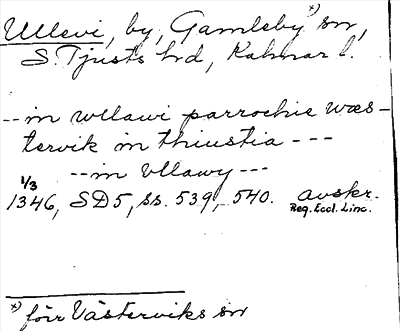 Ullevi, by, Gamleby *) sn,
S. Tjusts hd, Kalmar l.
-- in wllawi parrochie wæs-
tervik in thiustia ---
-- in vllawy ---
1/3
1346, SD5, ss. 539, 540. avskr.
Reg. Eccl. Linc.
*) förr Västerviks sn